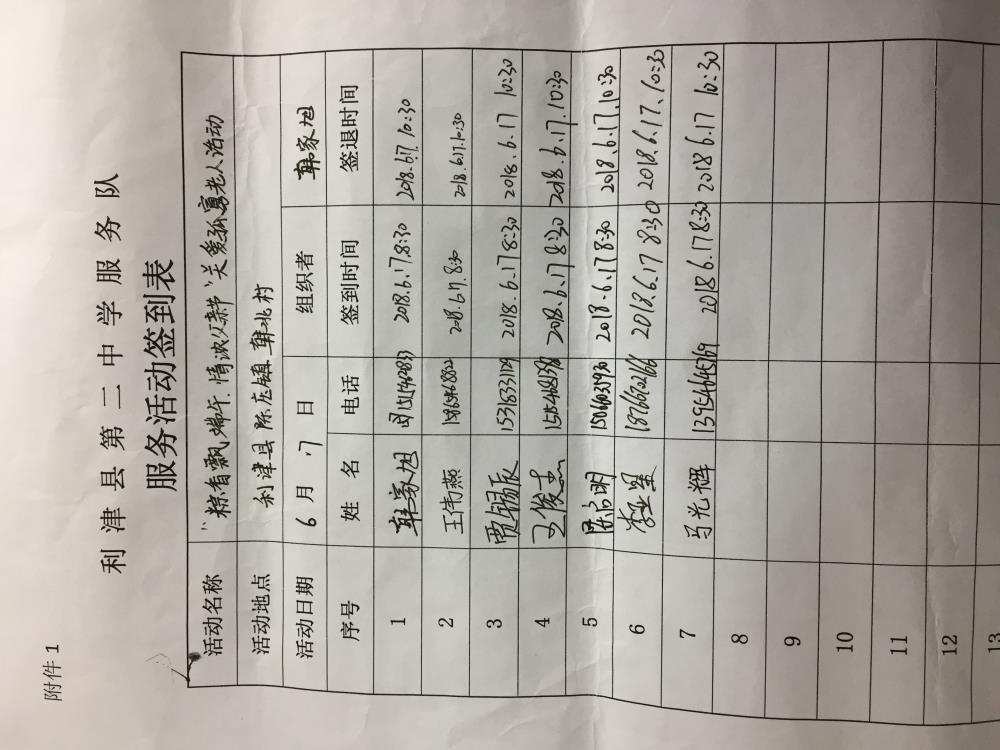 附件 1
利津县第二中学服务队
服务活动签到表
活动名称 “粽香飘端午,情浓父亲节”关爱孤寡老人活动
活动地点 利津县陈庄镇韩北村
活动日期 6 月 17 日 组织者 韩家旭
序号 姓名 电话 签到时间 签退时间
1 韩家旭 2018.6.17.8:30 2018.6.17.10:30
2 王伟燕 2018.6.17.8:30 2018.6.17.10:30
3 贾锡辰 2018.6.17 8:30 2018.6.17 10:30
4 王俊杰 2018.6.17 8:30 2018.6.17.10:30
5 2018.6.17 8:30 2018.6.17.10:30
6 李亚星 2018.6.17 8:30 2018.6.17.10:30
7 马光辉 13954645769 2018 6.17 8:30 2018 6.17 10:30
8
9
10
11
12
13